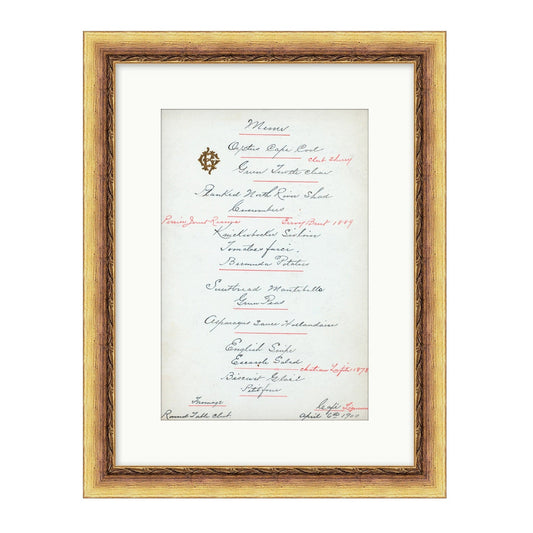 Menu
Oysters Cape Cod
Club Sherry
Green Turtle Clear
Planked North River Shad
Cucumbers
Perrier Jouet Reserve Brut 1889
Knickerbocker Sirloin
Tomatoes farci.
Bermuda Potatoes
Sweetbread
Green Peas
Asparagus Sauce Hollandaise
English Snipe
Escarole Salad
Chateau Lafite 1878
Biscuit Glacé
Petit four
Fromage
Café
Round Table Club. April 6th 1900